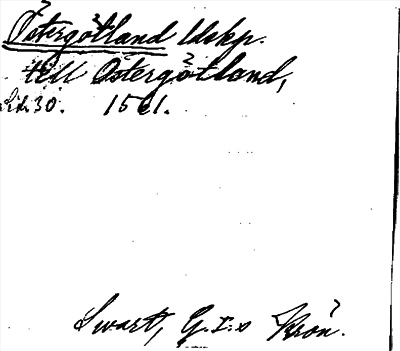 Östergötland Utskp.
till Östergötland,
Sid. 30. 1561.
Swart, G. I:s Krön.